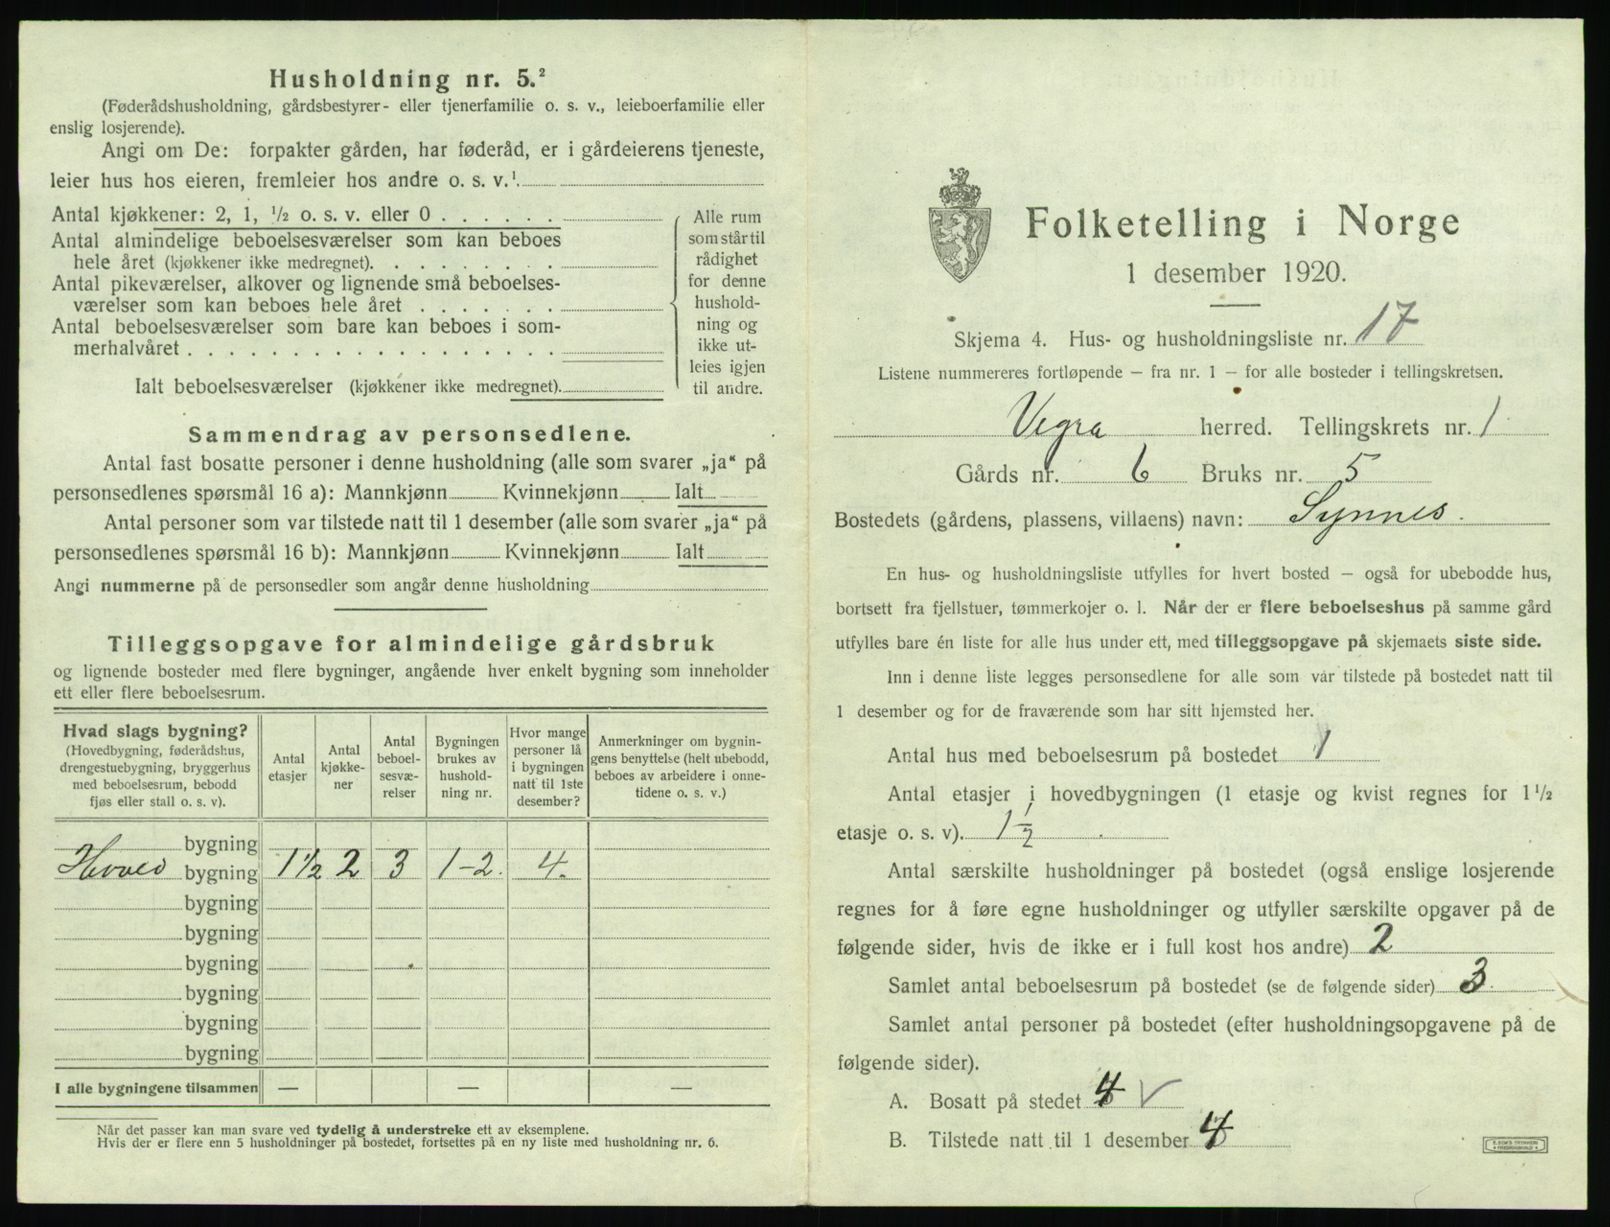 Husholdning nr. 5.²
(Føderådshusholdning, gårdsbestyrer- eller tjenerfamilie o. s. v., leieboerfamilie eller
enslig losjerende).
Angi om De: forpakter gården, har føderåd, er i gårdeierens tjeneste,
leier hus hos eieren, fremleier hos andre o. s. v.¹
Antal kjøkkener: 2, 1, ½ o. s. v. eller 0
Antal almindelige beboelsesværelser som kan beboes
hele året (kjøkkener ikke medregnet).
Antal pikeværelser, alkover og lignende små beboelses-
værelser som kan beboes hele året
Antal beboelsesværelser som bare kan beboes i som-
merhalvåret
Ialt beboelsesværelser (kjøkkener ikke medregnet).
Alle rum
som står til
rådighet
for denne
hushold-
ning og
ikke ut-
leies igjen
til andre.
Sammendrag av personsedlene.
Antal fast bosatte personer i denne husholdning (alle som svarer „ja“ på
personsedlenes spørsmål 16 a): Mannkjønn Kvinnekjønn Ialt
Antal personer som var tilstede natt til 1 desember (alle som svarer „ja“ på
personsedlenes spørsmål 16 b): Mannkjønn Kvinnekjønn Ialt
Angi nummerne på de personsedler som angår denne husholdning
Tilleggsopgave for almindelige gårdsbruk
og lignende bosteder med flere bygninger, angående hver enkelt bygning som inneholder
ett eller flere beboelsesrum.
Hvad slags bygning?
(Hovedbygning, føderådshus,
drengestuebygning, bryggerhus
med beboelsesrum, bebodd
fjøs eller stall o. s. v).
Antal
etasjer
Antal
kjøkke-
ner
Antal
beboel-
sesvæ-
relser
Bygningen
brukes av
hushold-
ning nr.
Hvor mange
personer lå
i bygningen
natt til 1ste
desember?
Anmerkninger om bygnin-
gens benyttelse (helt ubebodd,
beboes av arbeidere i onne-
tidene o. s. v.)
bygning
Hoved bygning 1½ 2 3 1-2. 4.
bygning
bygning
bygning
bygning
bygning
bygning
I alle bygningene tilsammen — — —
Når det passer kan man svare ved tydelig å understreke ett av eksemplene.
Hvis der er flere enn 5 husholdninger på bostedet, fortsettes på en ny liste med husholdning nr. 6.
Folketelling i Norge
1 desember 1920.
Skjema 4. Hus- og husholdningsliste nr. 17
Listene nummereres fortløpende — fra nr. 1 — for alle bosteder i tellingskretsen.
Vigra herred. Tellingskrets nr. 1
Gårds nr. 6 Bruks nr. 5
Bostedets (gårdens, plassens, villaens) navn: Synnes.
En hus- og husholdningsliste utfylles for hvert bosted — også for ubebodde hus,
bortsett fra fjellstuer, tømmerkojer o. l. Når der er flere beboelseshus på samme gård
utfylles bare én liste for alle hus under ett, med tilleggsopgave på skjemaets siste side.
Inn i denne liste legges personsedlene for alle som var tilstede på bostedet natt til
1 desember og for de fraværende som har sitt hjemsted her.
Antal hus med beboelsesrum på bostedet 1
Antal etasjer i hovedbygningen (1 etasje og kvist regnes for 1½
etasje o. s. v). 1½
Antal særskilte husholdninger på bostedet (også enslige losjerende
regnes for å føre egne husholdninger og utfyller særskilte opgaver på de
følgende sider, hvis de ikke er i full kost hos andre) 2
Samlet antal beboelsesrum på bostedet (se de følgende sider) 3
Samlet antal personer på bostedet (efter husholdningsopgavene på de
følgende sider).
A. Bosatt på stedet 4 √
B. Tilstede natt til 1 desember 4